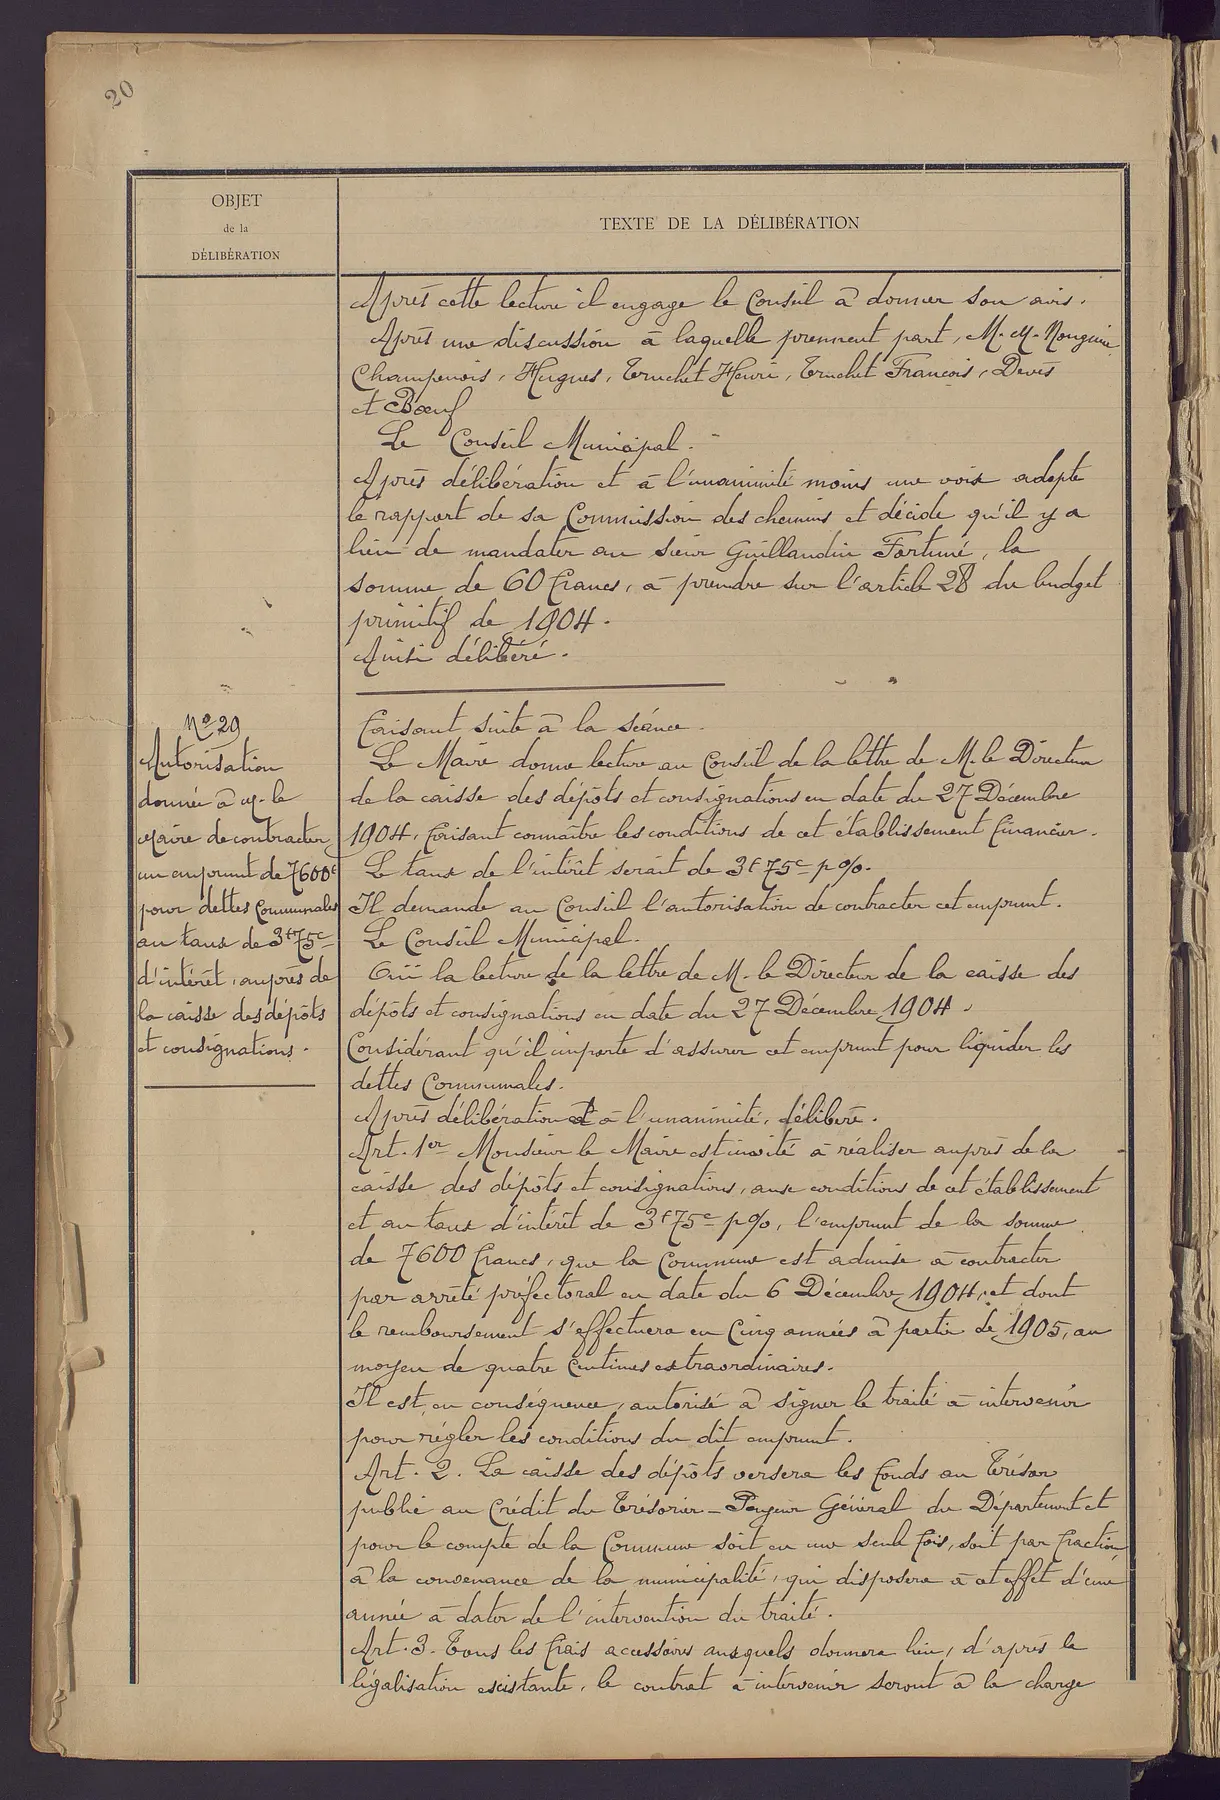 20
OBJET
de la
DÉLIBÉRATION
TEXTE DE LA DÉLIBÉRATION
Après cette lecture il engage le Conseil à donner son avis.
Après une discussion à laquelle prennent part, M. M. Nouguier
Champenois, Hugues, Truchet Henri, Truchet François, Devès
et Bœuf
Le Conseil Municipal.
Après délibération et à l'unanimité moins une voix adopte
le rapport de sa Commission des chemins et décide qu'il y a
lieu de mandater au sieur Guillaudin Fortuné, la
somme de 60 francs, à prendre sur l'article 28 du budget
primitif de 1904.
Ainsi délibéré.
Nº 29
Autorisation
donnée à M. le
Maire de contracter
un emprunt de 7600f
pour dettes Communales
au taux de 3f75c
d'intérêt, auprès de
la caisse des dépôts
et consignations.
Faisant suite à la séance.
Le Maire donne lecture au Conseil de la lettre de M. le Directeur
de la caisse des dépôts et consignations en date du 27 Décembre
1904, faisant connaître les conditions de cet établissement financier.
Le taux de l'intérêt serait de 3f75c p%.
Il demande au Conseil l'autorisation de contracter cet emprunt.
Le Conseil Municipal.
Ouï la lecture de la lettre de M. le Directeur de la caisse des
dépôts et consignations en date du 27 Décembre 1904.
Considérant qu'il importe d'assurer cet emprunt pour liquider les
dettes Communales.
Après délibération et à l'unanimité, délibère.
Art. 1er Monsieur le Maire est invité à réaliser auprès de la
caisse des dépôts et consignations, aux conditions de cet établissement
et au taux d'intérêt de 3f75c p%, l'emprunt de la somme
de 7600 francs, que la Commune est admise à contracter
par arrêté préfectoral en date du 6 Décembre 1904, et dont
le remboursement s'effectuera en Cinq années à partir de 1905, au
moyen de quatre Centimes extraordinaires.
Il est, en conséquence, autorisé à signer le traité à intervenir
pour régler les conditions du dit emprunt.
Art. 2. La caisse des dépôts versera les fonds au Trésor
public au Crédit du Trésorier-Payeur Général du Département et
pour le compte de la Commune soit en une seule fois, soit par fraction
à la convenance de la municipalité, qui disposera à cet effet d'une
année à dater de l'intervention du traité.
Art. 3. Tous les frais accessoires auxquels donnera lieu, d'après la
légalisation existante, le contrat à intervenir seront à la charge